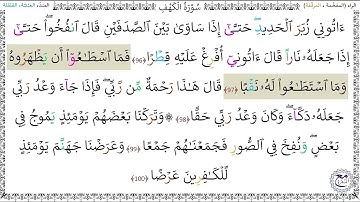 سُورَةُ الْكَهْفِ
ءَاتُونِي زُبَرَ الْحَدِيدِ ۖ حَتَّىٰٓ إِذَا سَاوَىٰ بَيْنَ الصَّدَفَيْنِ قَالَ انفُخُوا۟ ۖ حَتَّىٰٓ
إِذَا جَعَلَهُۥ نَارًا قَالَ ءَاتُونِيٓ أُفْرِغْ عَلَيْهِ قِطْرًا (96) فَمَا اسْطَـٰعُوٓا۟ أَن يَظْهَرُوهُ
وَمَا اسْتَطَـٰعُوا۟ لَهُۥ نَقْبًا (97) قَالَ هَـٰذَا رَحْمَةٌ مِّن رَّبِّي ۖ فَإِذَا جَآءَ وَعْدُ رَبِّي
جَعَلَهُۥ دَكَّآءَ ۖ وَكَانَ وَعْدُ رَبِّي حَقًّا (98) ۞ وَتَرَكْنَا بَعْضَهُمْ يَوْمَئِذٍ يَمُوجُ فِي
بَعْضٍ ۖ وَنُفِخَ فِي الصُّورِ فَجَمَعْنَـٰهُمْ جَمْعًا (99) وَعَرَضْنَا جَهَنَّمَ يَوْمَئِذٍ
لِّلْكَـٰفِرِينَ عَرْضًا (100)